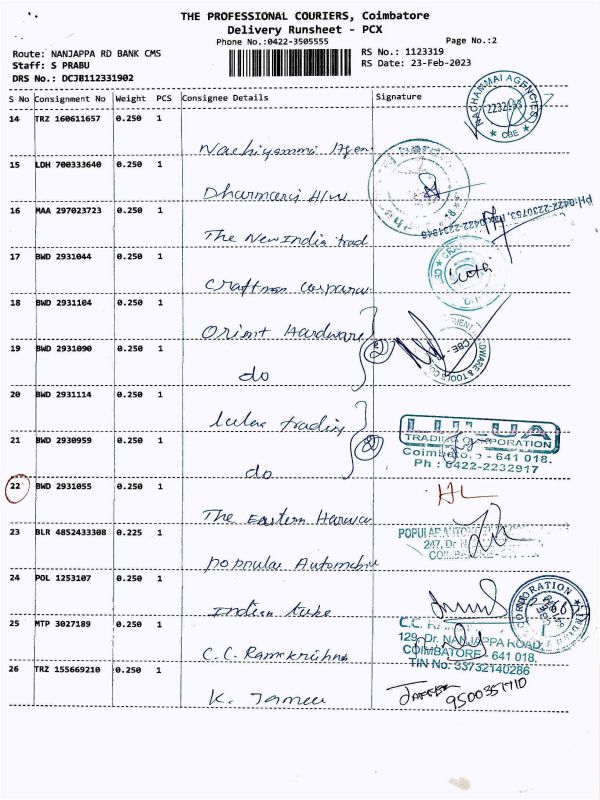 THE PROFESSIONAL COURIERS, Coimbatore
Delivery Runsheet - PCX
Phone No.:0422-3505555
Page No.:2
Route: NANJAPPA RD BANK CMS
Staff: S PRABU
DRS No.: DCJB112331902
RS No.: 1123319
RS Date: 23-Feb-2023
S No Consignment No Weight PCS Consignee Details Signature
NACHAMMAI AGENCIES
CBE
14 TRZ 160611657 0.250 1
Nachiyammai Agen
15 LDH 700333640 0.250 1
Dharmaraj H/w
16 MAA 297023723 0.250 1
The New India trad
PH:0422-2230753,
17 BWD 2931044 0.250 1
Craftman
18 BWD 2931104 0.250 1
Orient Hardware
19 BWD 2931090 0.250 1
do
2
20 BWD 2931114 0.250 1
Lulua trading
21 BWD 2930959 0.250 1
do
LULUA
TRADING CORPORATION
Coimbatore - 641 018.
Ph : 0422-2232917
22 BWD 2931055 0.250 1
The Eastern Harwa
23 BLR 4852433308 0.225 1
Popular Automobile
POPULAR
247, Dr
COIMBATORE
24 POL 1253107 0.250 1
Indian tube
25 MTP 3027189 0.250 1
C.C. Ramakrishna
C.C.
129, Dr. NANJAPPA ROAD,
COIMBATORE - 641 018.
TIN No: 33732140286
26 TRZ 155669210 0.250 1
K. Jameel
JAFEER
9500351710